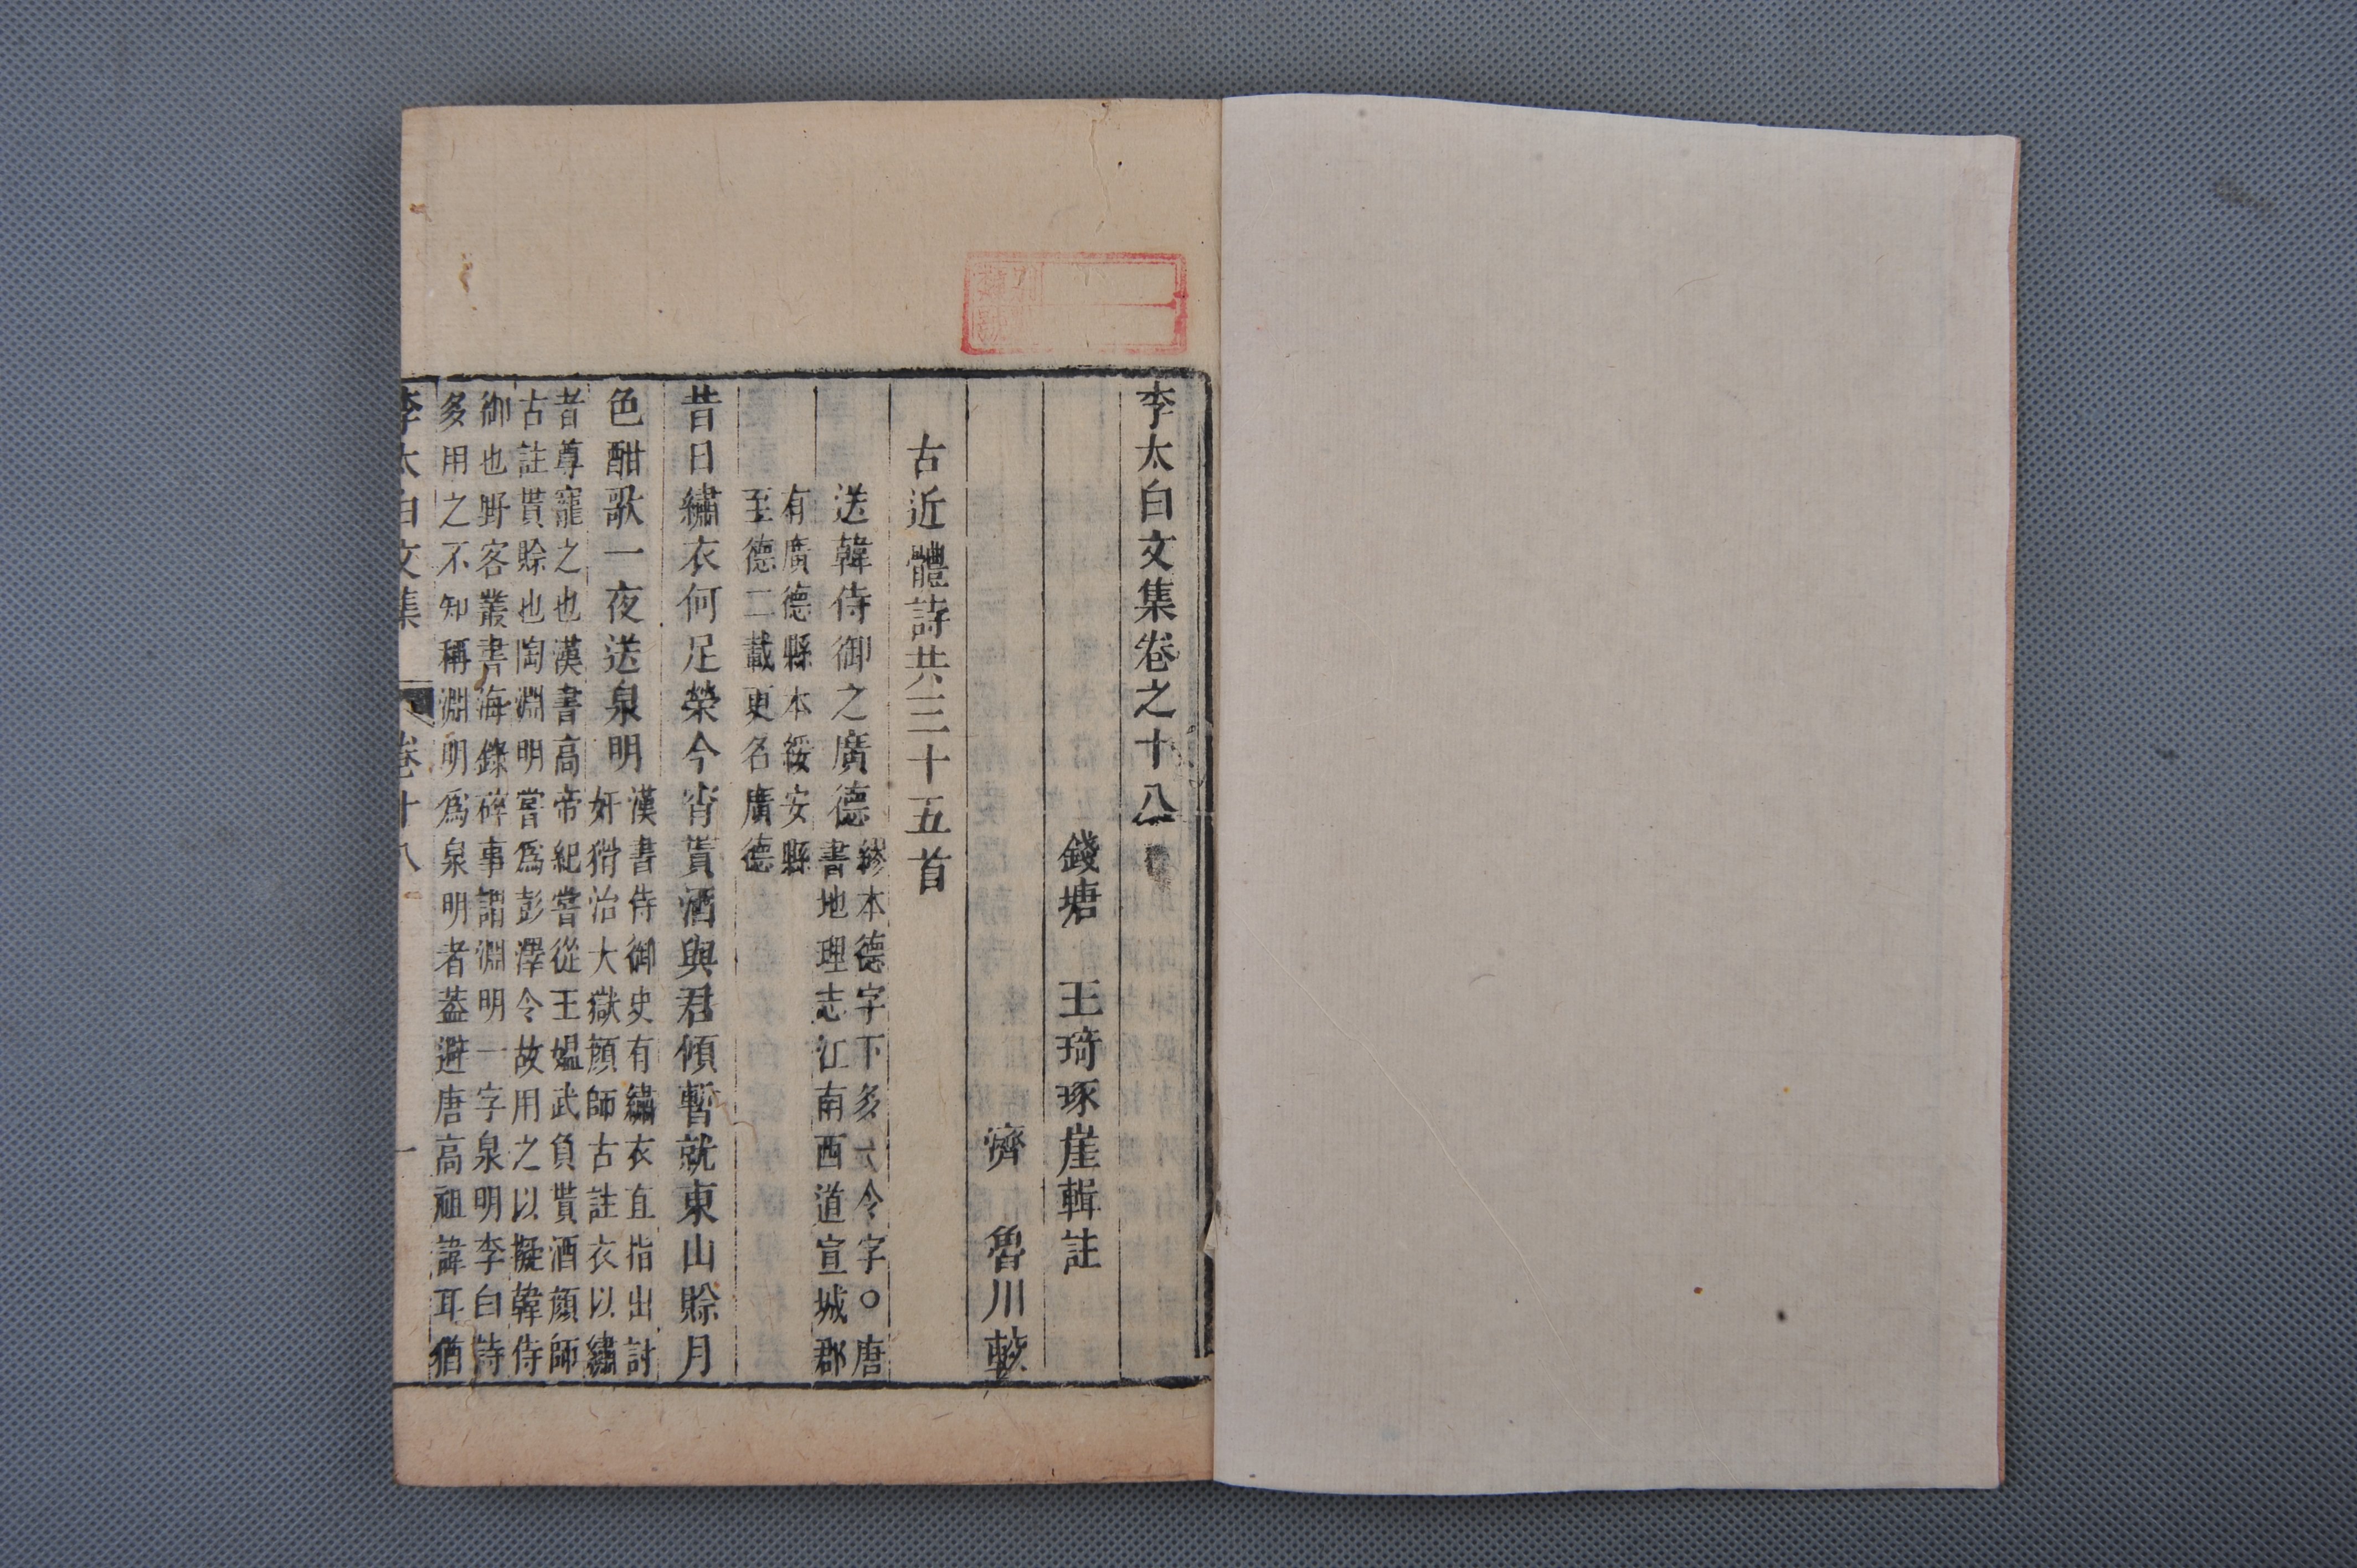 李太白文集卷之十八
錢塘 王琦琢崖輯註
濟 魯川較
古近體詩共三十五首
送韓侍御之廣德
繆本德字下多一令字○唐
書地理志江南西道宣城郡
有廣德縣本綏安縣
至德二載更名廣德
昔日繡衣何足榮今宵貰酒與君傾暫就東山賒月
色酣歌一夜送泉明
漢書侍御史有繡衣直指出討
奸猾治大獄顔師古註衣以繡
者尊寵之也漢書高帝紀嘗從王媪武負貰酒顔師
古註貰賒也陶淵明嘗爲彭澤令故用之以擬韓侍
御也野客叢書海錄碎事謂淵明一字泉明李白詩
多用之不知稱淵明爲泉明者葢避唐高祖諱耳猶
李太白文集 卷十八 一